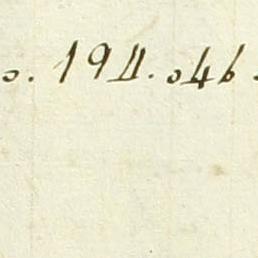 0. 194. 046.